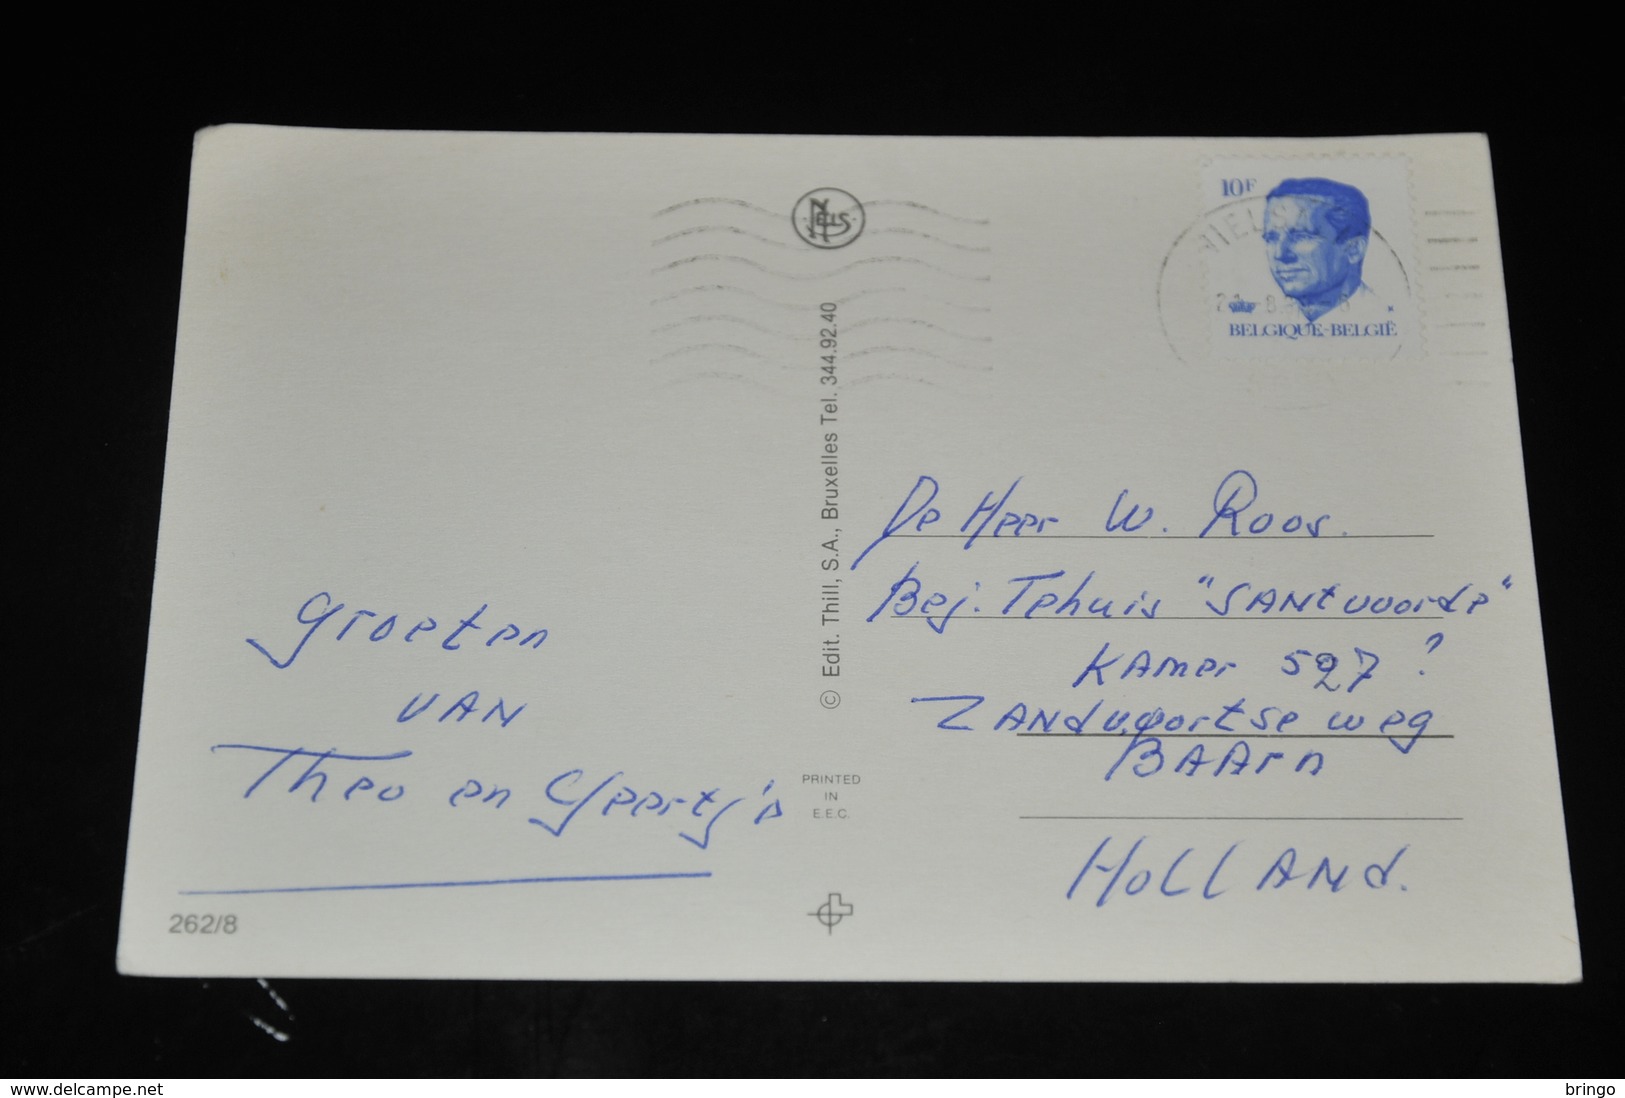 NELS
10F
BELGIQUE-BELGIË
© Edit. Thill, S.A., Bruxelles Tel. 344.92.40
Groeten
VAN
Theo en Geertj'e
PRINTED
IN
E.E.C.
262/8
De Heer W. Roos.
Bej. Tehuis "SANtvoorde"
KAmer 527 ?
ZANdvoortse weg
BAArn
HoLLANd.
www.delcampe.net
bringo